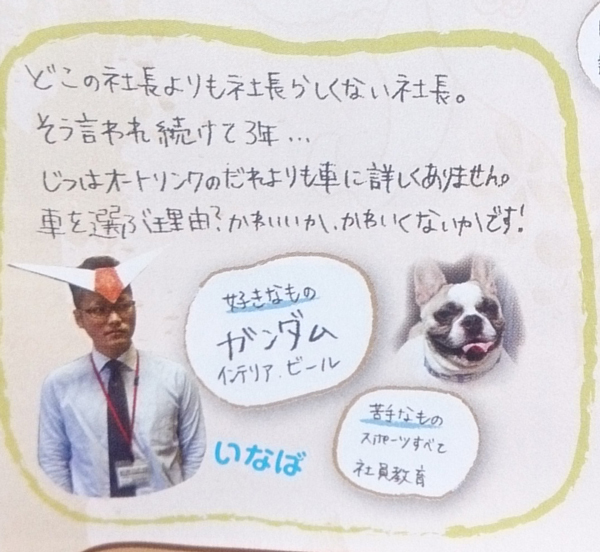 どこの社長よりも社長らしくない社長。
そう言われ続けて3年…
じつはオートリンクのだれよりも車に詳しくありません。
車を選ぶ理由?かわいいか、かわいくないかです!
好きなもの
ガンダム
インテリア、ビール
苦手なもの
スポーツすべて
社員教育
いなば